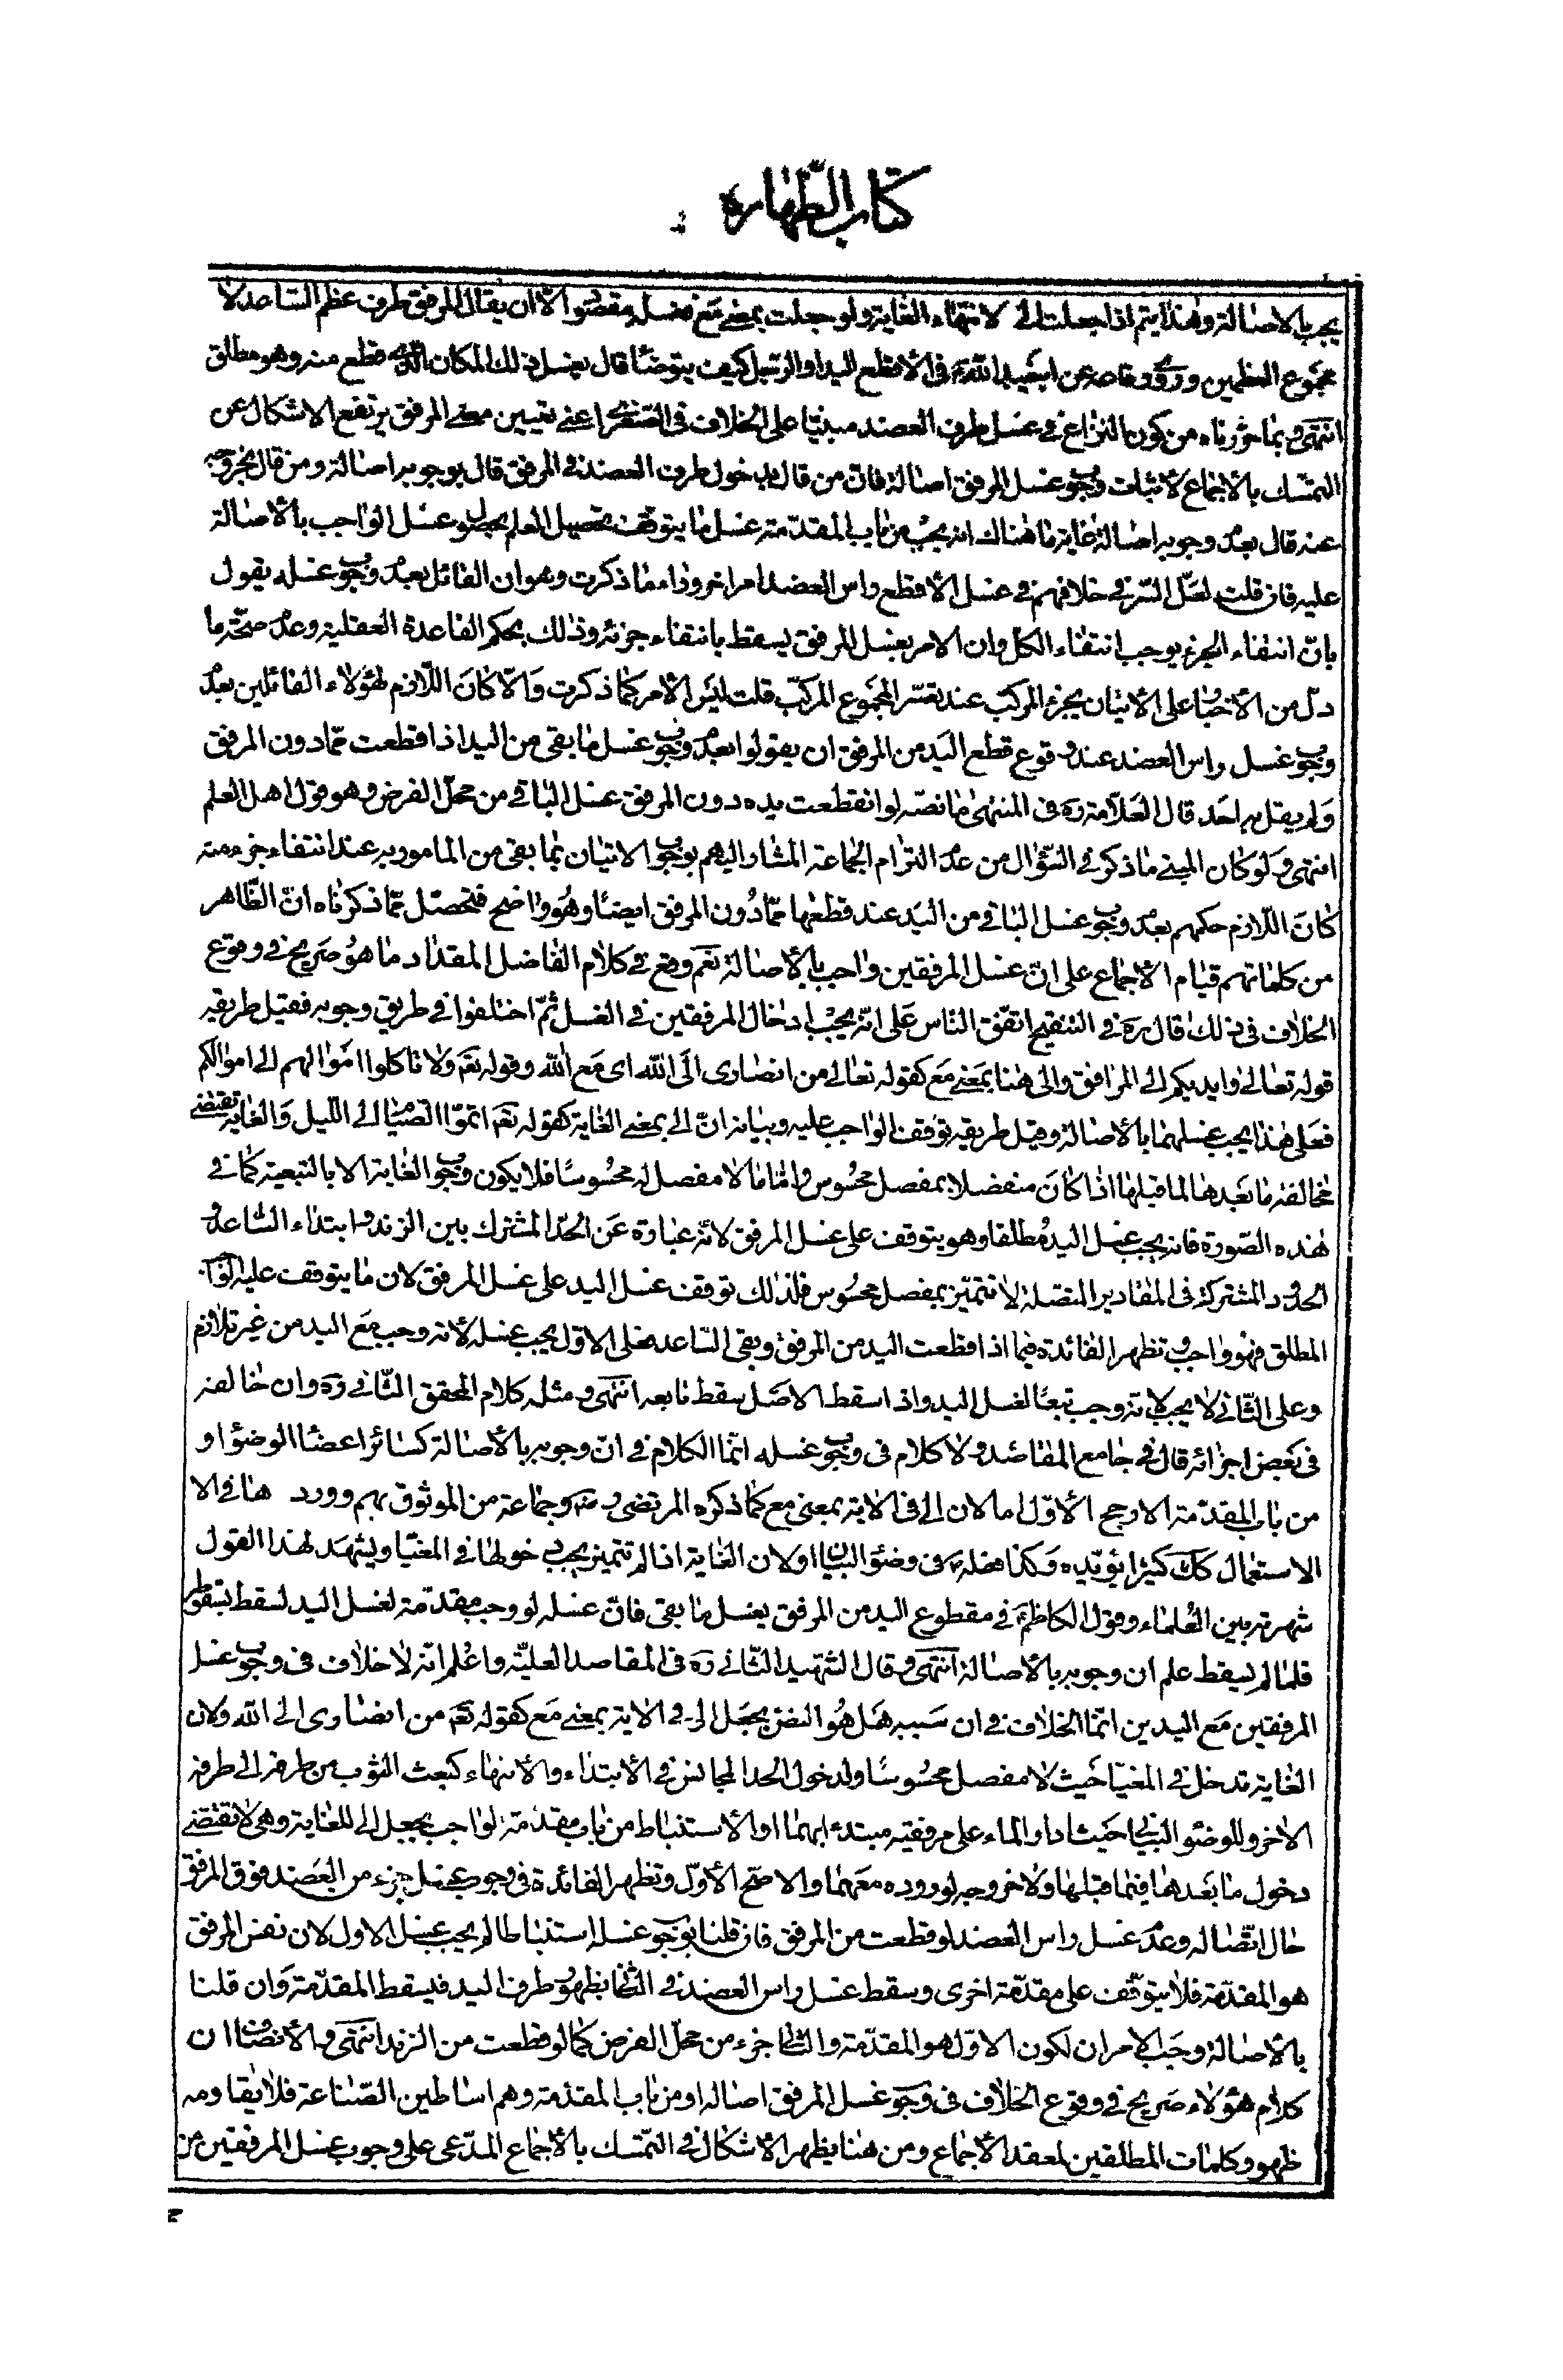 كتاب الطهارة
يجب بالاصالة وهذا يتم اذا جعلت الى لانتهاء الغاية ولو جعلت بمعنى مع فغسله مقصود الا ان يقال المرفق طرف عظم الساعد لا
مجموع العظمين وروى رفاعة عن ابيعبد الله ع في الاقطع اليد او الرجل كيف يتوضأ قال يغسل ذلك المكان الذي قطع منه وهو مطلق
انتهى وبما حررناه من كون النزاع في غسل طرف العضد مبنيا على الخلاف في الصغرى اعني تعيين معنى المرفق يرتفع الاشكال عن
التمسك بالاجماع لاثبات وجوب غسل المرفق اصالة فان من قال بدخول طرف العضد في المرفق قال بوجوبه اصالة ومن قال بخروجه
عنه قال بعدم وجوبه اصالة غاية ما هناك انه يجب من باب المقدمة غسل ما يتوقف تحصيل العلم بحصول غسل الواجب بالاصالة
عليه فان قلت لعل السر في خلافهم في غسل الاقطع راس العضد امر اخر وراء ما ذكرت وهو ان القائل بعدم وجوب غسله يقول
بان انتفاء الجزء يوجب انتفاء الكل وان الامر بغسل المرفق يسقط بانتفاء جزئه وذلك بحكم القاعدة العقلية وعدم صحة ما
دل من الاخبار على الاتيان بجزء المركب عند تعسر المجموع المركب قلت ليس الامر كما ذكرت والا كان اللازم لهؤلاء القائلين بعدم
وجوب غسل راس العضد عند وقوع قطع اليد من المرفق ان يقولوا بعدم وجوب غسل ما بقى من اليد اذا قطعت مما دون المرفق
ولم يقل به احد قال العلامة ره في المنتهى ما نصه لو انقطعت يده دون المرفق غسل الباقي من محل الفرض وهو قول اهل العلم
انتهى ولو كان المبنى ما ذكر في السؤال من عدم التزام الجماعة المشار اليهم بوجوب الاتيان بما بقى من المامور به عند انتفاء جزء منه
كان اللازم حكمهم بعدم وجوب غسل الباقي من اليد عند قطعها مما دون المرفق ايضا وهو واضح فتحصل مما ذكرناه ان الظاهر
من كلماتهم قيام الاجماع على ان غسل المرفقين واجب بالاصالة نعم وقع في كلام الفاضل المقداد ما هو صريح في وقوع
الخلاف في ذلك قال ره في التنقيح اتفق الناس على انه يجب ادخال المرفقين في الغسل ثم اختلفوا في طريق وجوبه فقيل طريقه
قوله تعالى وايديكم الى المرافق والى هنا بمعنى مع كقوله تعالى من انصارى الى الله اى مع الله وقوله تعم ولا تاكلوا اموالهم الى اموالكم
فعلى هذا يجب غسلهما بالاصالة وقيل طريقه توقف الواجب عليه وبيانه ان الى بمعنى الغاية كقوله تعم اتموا الصيام الى الليل والغاية تقتضى
مخالفة ما بعدها لما قبلها اذا كان منفصلا بمفصل محسوس واما ما لا مفصل له محسوسا فلا يكون وجوب الغاية الا بالتبعية كما في
هذه الصورة فانه يجب غسل اليد مطلقا وهو يتوقف على غسل المرفق لانه عبارة عن الحد المشترك بين الزند وابتداء الساعد و
الحدود المشتركة في المقادير المتصلة لا تتميز بمفصل محسوس فلذلك توقف غسل اليد على غسل المرفق لان ما يتوقف عليه الواجب
المطلق فهو واجب وتظهر الفائدة فيما اذا قطعت اليد من المرفق وبقى الساعد فعلى الاول يجب غسله لانه وجب مع اليد من غير تلازم
وعلى الثاني لا يجب لانه وجب تبعا لغسل اليد واذا سقط الاصل سقط تابعه انتهى ومثله كلام المحقق الثاني ره وان خالفه
في بعض اجزائه قال في جامع المقاصد ولا كلام في وجوب غسله انما الكلام في ان وجوبه بالاصالة كسائر اعضاء الوضوء او
من باب المقدمة الارجح الاول اما لان الى في الاية بمعنى مع كما ذكره المرتضى ره وجماعة من الموثوق بهم وورد ها في الا
الاستعمال كك كثيرا يؤيده وكذا فعله ع في وضوء البيان او لان الغاية اذا لم تتميز يجب دخولها في المغيا ويشهد لهذا القول
شهرته بين العلماء وقول الكاظم ع في مقطوع اليد من المرفق يغسل ما بقى فان غسله لو وجب مقدمة لغسل اليد لسقط بسقوطه
فلما لم يسقط علم ان وجوبه بالاصالة انتهى وقال الشهيد الثاني ره في المقاصد العلية واعلم انه لا خلاف في وجوب غسل
المرفقين مع اليدين انما الخلاف في ان سببه هل هو النص بجعل الى في الاية بمعنى مع كقوله تعم من انصارى الى الله ولان
الغاية تدخل في المغيا حيث لا مفصل محسوسا ولدخول الحد المجانس في الابتداء والانتهاء كبعت الثوب من طرفه الى طرفه
الاخر وللوضوء البياني حيث ادار الماء على مرفقيه مبتدء ابهما او الاستنباط من باب مقدمة الواجب بجعل الى للغاية وهى لا تقتضى
دخول ما بعدها فيما قبلها ولا خروجه لوروده معهما والاصح الاول وتظهر الفائدة في وجوب غسل جزء من العضد فوق المرفق
حال اتصاله وعدم غسل راس العضد لو قطعت من المرفق فان قلنا بوجوب غسله استنباطا لم يجب غسل الاول لان نفس المرفق
هو المقدمة فلا يتوقف على مقدمة اخرى وسقط غسل راس العضد في الثاني بظهور طرف اليد فيسقط المقدمة وان قلنا
بالاصالة وجب الامران لكون الاول هو المقدمة والثاني جزء من محل الفرض كما لو قطعت من الزند انتهى والانصاف ان
كلام هؤلاء صريح في وقوع الخلاف في وجوب غسل المرفق اصالة او من باب المقدمة وهم اساطين الصناعة فلا يقاومه
ظهور كلمات المطلقين لعقد الاجماع ومن هنا يظهر الاشكال في التمسك بالاجماع المدعى على وجوب غسل المرفقين من